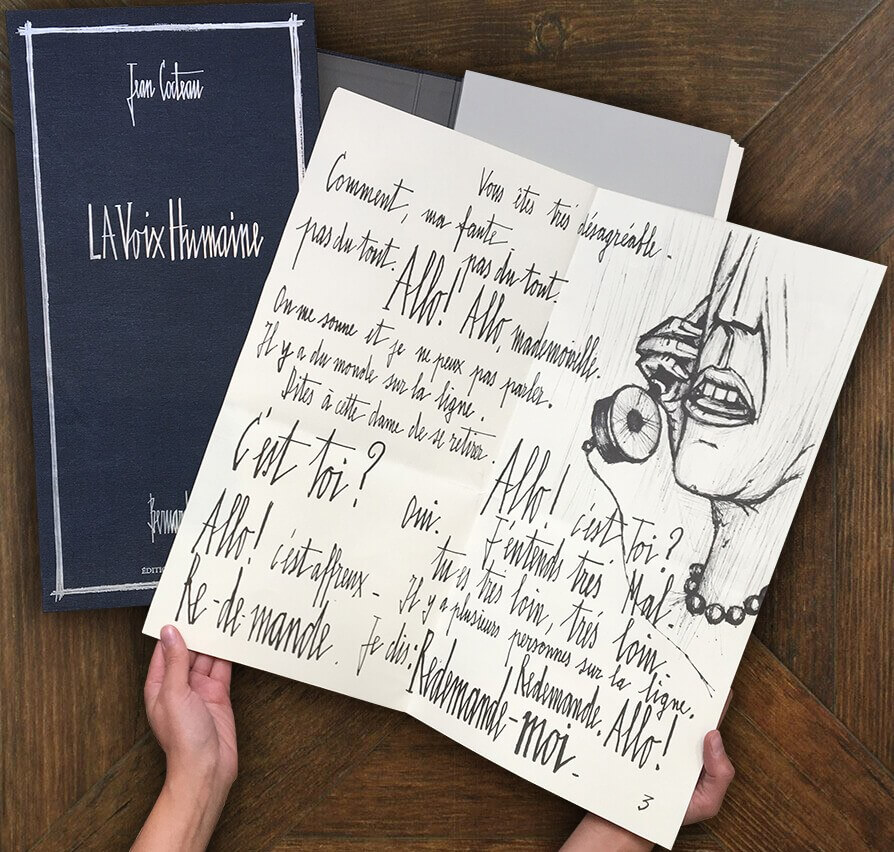 Jean Cocteau
LA Voix Humaine
Bernar
ÉDITIO
Vous êtes très désagréable.
Comment, ma faute
pas du tout. pas du tout.
Allo! Allo, mademoiselle.
On me sonne et je ne peux pas parler.
Il y a du monde sur la ligne.
Dites à cette dame de se retirer.
C'est toi?
Oui.
Allo! c'est Toi?
J'entends très Mal.
tu es très loin, très loin.
Allo! c'est affreux -
Il y a plusieurs personnes sur la ligne.
Re-de-mande. Je dis: Redemande-moi.
Redemande. Allo!
3